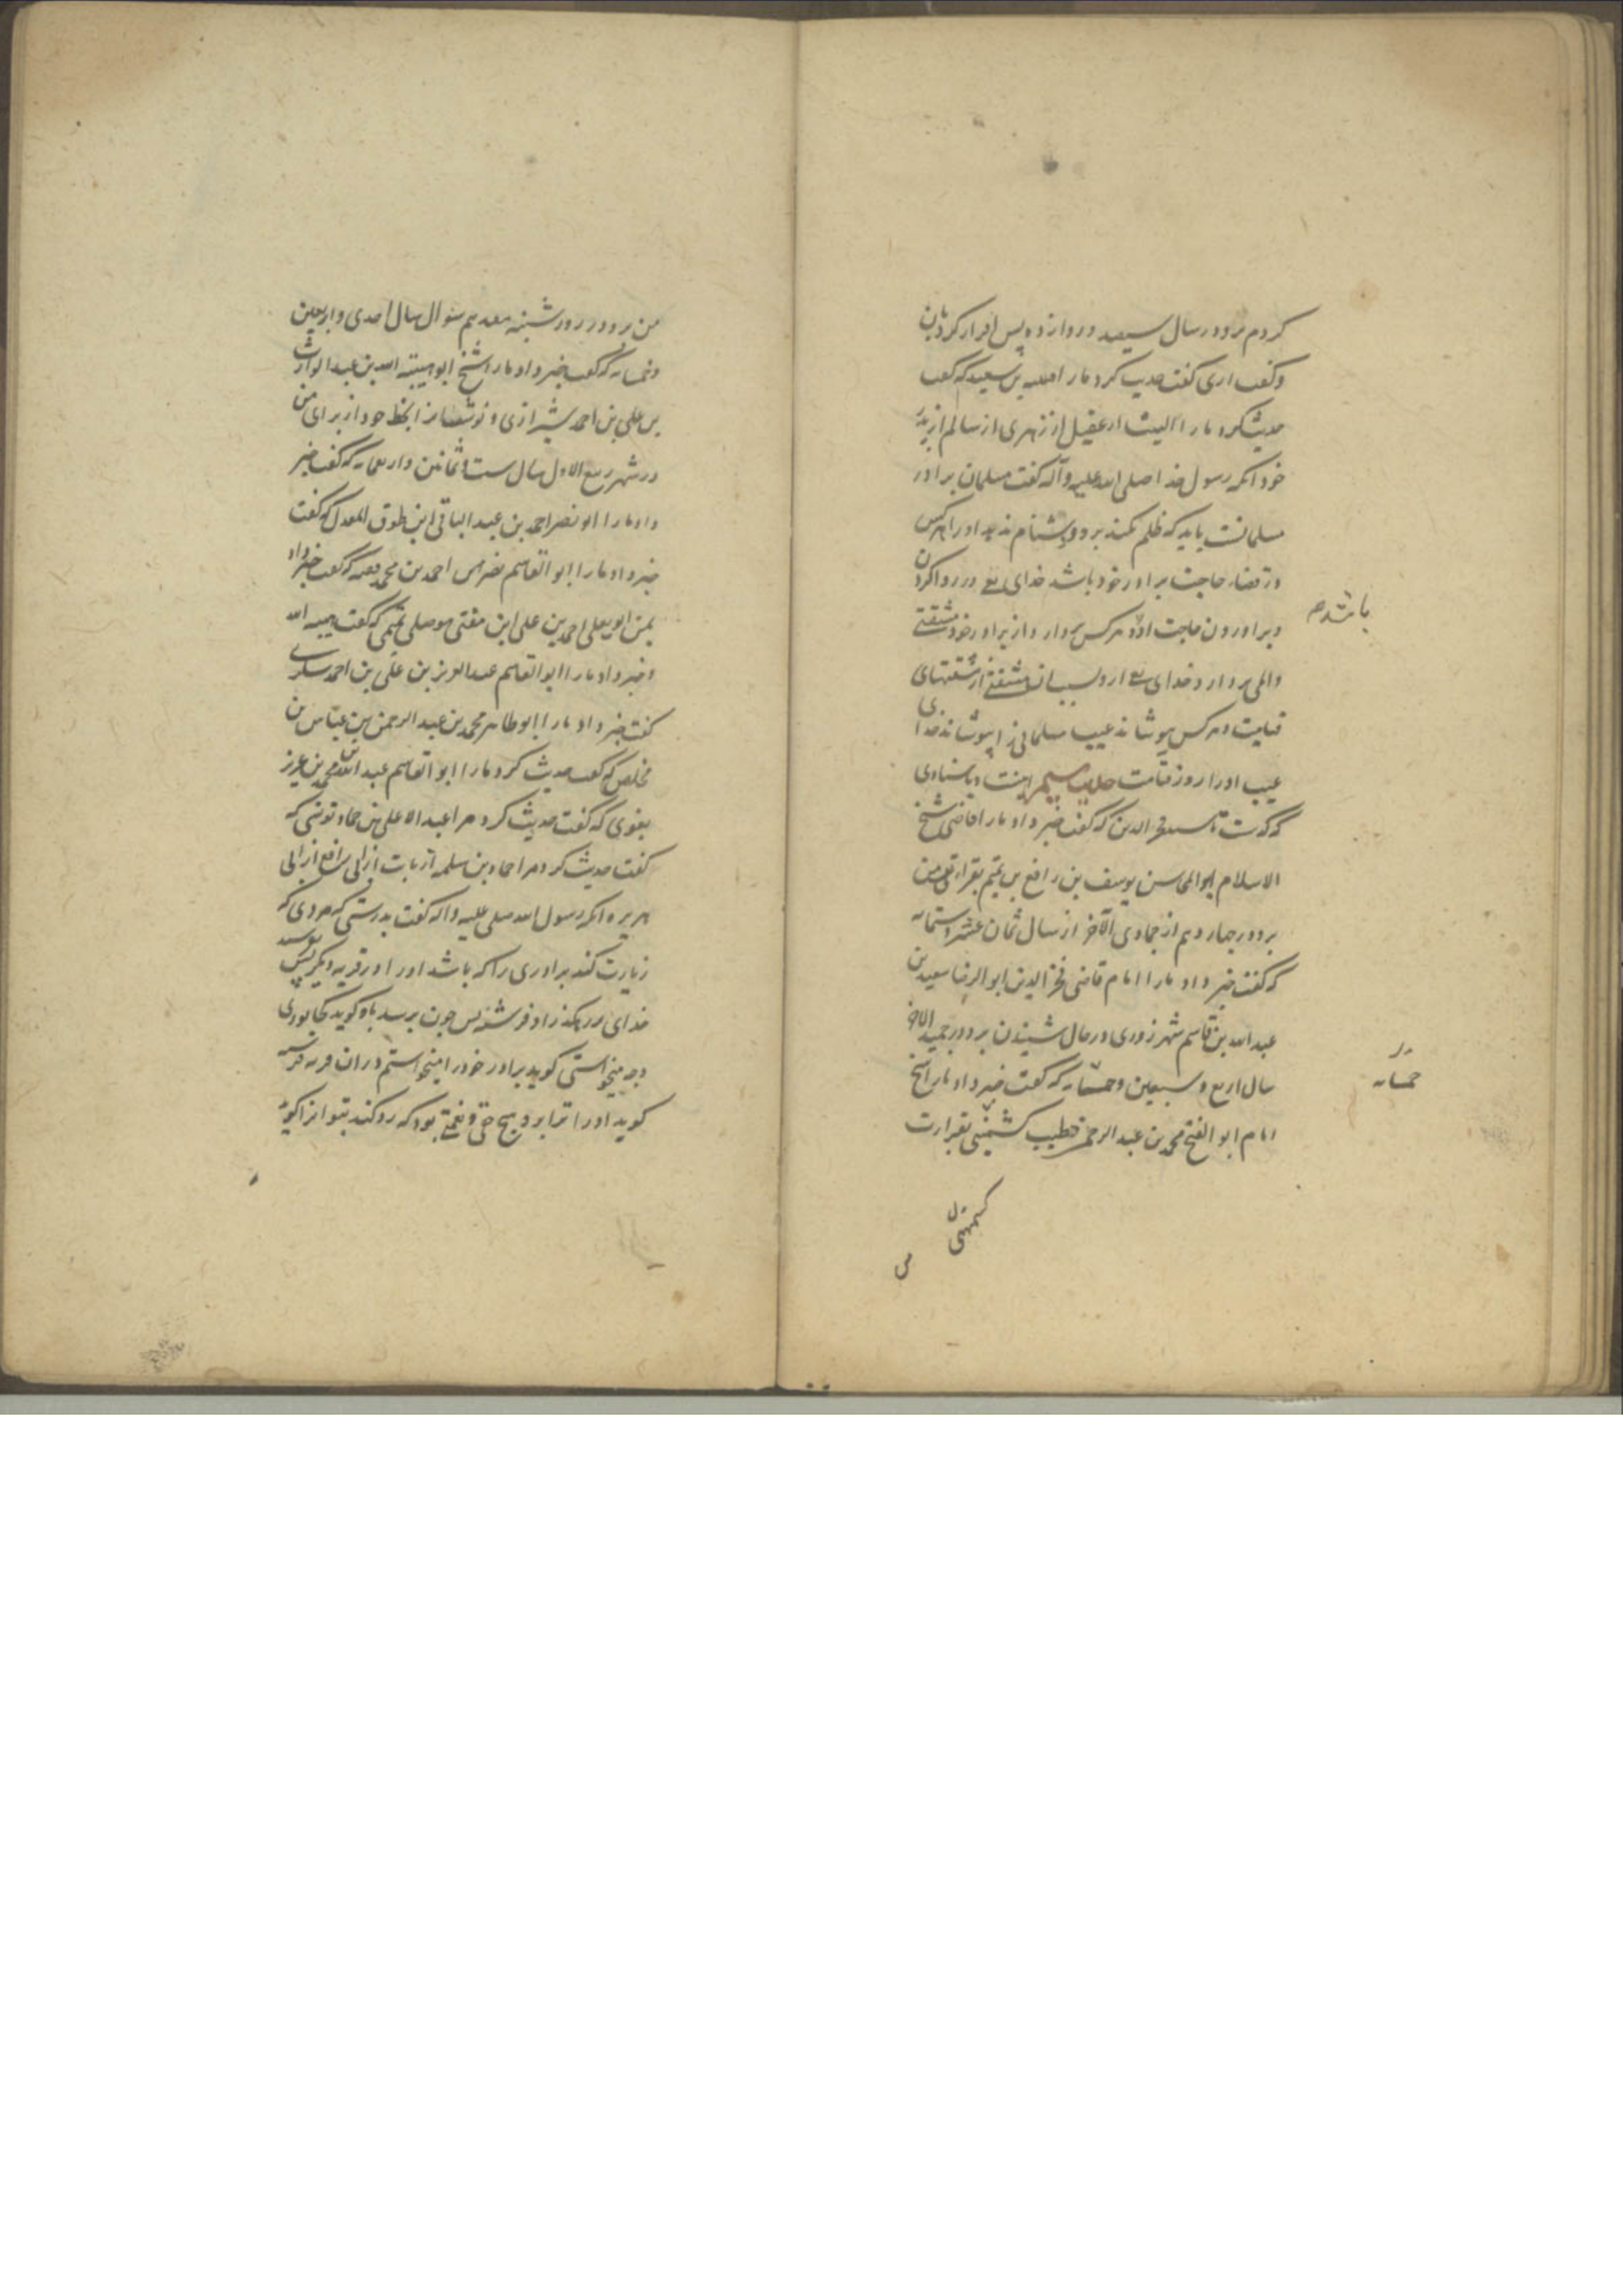 کردم برو در سال سیصد و دوازده پس اقرار کرد بآن
و گفت اری گفت حدیث کرد ما را قتیبه بن سعید که گفت
حدیث کرد ما را لیث از عقیل از زهری از سالم از پدر
خود انکه رسول خدا صلی الله علیه و آله گفت مسلمان برادر
مسلمانست باید که ظلم نکند برو و دشنام ندهد او را و هر کس
در قضاء حاجت برادر خود باشد خدای تع در روا کردن
باشد
و براوردن حاجت او و هر کس بردارد از برادر خود مشقتی
و المی بردارد خدای تع ازو بسبب آن مشقتی از مشقتهای
قیامت و هر کس بپوشاند عیب مسلمانی را بپوشاند خدای
عیب او را روز قیامت حدیث سیم اینست و باسنادی
که گفت خبر داد ما را قاضی شیخ
الاسلام ابو المحاسن یوسف بن رافع بن تمیم بقرائتی من
برو در چهاردهم از جمادی الآخر از سال ثمان عشر و ستمایه
که گفت خبر داد ما را امام قاضی فخر الدین ابو الرضا سعید بن
عبد الله بن قاسم شهرزوری در حال شنیدن برو در جمید الاخر
سال اربع و سبعین و خمسمایه که گفت خبر داد ما را شیخ
خمسمایه
امام ابو الفتح محمد بن عبد الرحمن خطیب کشمیهنی بقرارت
کشمیهنی
من
من برو در روز شنبه هفدهم شوال سال احدی و اربعین
و خمسمایه که گفت خبر داد ما را شیخ ابو هبة الله بن عبد الوارث
بن علی بن احمد شیرازی و نوشت انرا بخط خود از برای من
در شهر ربیع الاول سال ست و ثمانین و اربعمایه که گفت خبر
داد ما را ابو نصر احمد بن عبد الباقی ابن طوق المعدل که گفت
خبر داد ما را ابو القاسم نصر بن احمد بن محمد فقیه که گفت خبر داد
بمن ابو یعلی احمد بن علی ابن مثنی موصلی تمیمی که گفت هبة الله
و خبر داد ما را ابو القاسم عبد العزیز بن علی بن احمد سکری
گفت خبر داد ما را ابو طاهر محمد بن عبد الرحمن بن عباس بن
مخلص که گفت حدیث کرد ما را ابو القاسم عبد الله بن محمد بن عزیز
بغوی که گفت حدیث کرد مرا عبد الاعلی بن حماد نرسی که
گفت حدیث کرد مرا حماد بن سلمه از ثابت از ابی رافع از ابی
هریره انکه رسول الله صلی علیه و اله گفت بدرستی که مردی که
زیارت کند برادری را که باشد او را در قریه دیگر پس
خدای در رهگذر او فرشته پس چون برسد باو گوید کجا بودی
و چه میخواستی گوید برادر خود را میخواستم در آن قریه فرشته
گوید او را ترا برو هیچ حقی و نعمتی بود که رو کند بتو انرا گوید